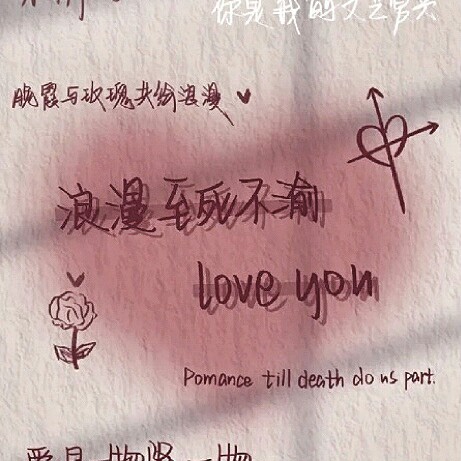 你是我的文艺官关
晚霞与玫瑰共给浪漫
浪漫至死不渝
love you
Pomance till death do us part.